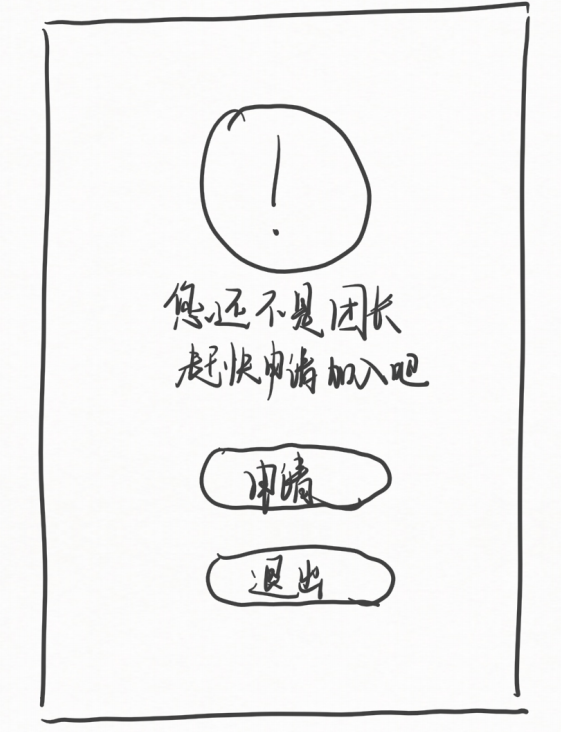 !
您还不是团长
赶快申请加入吧
申请
退出